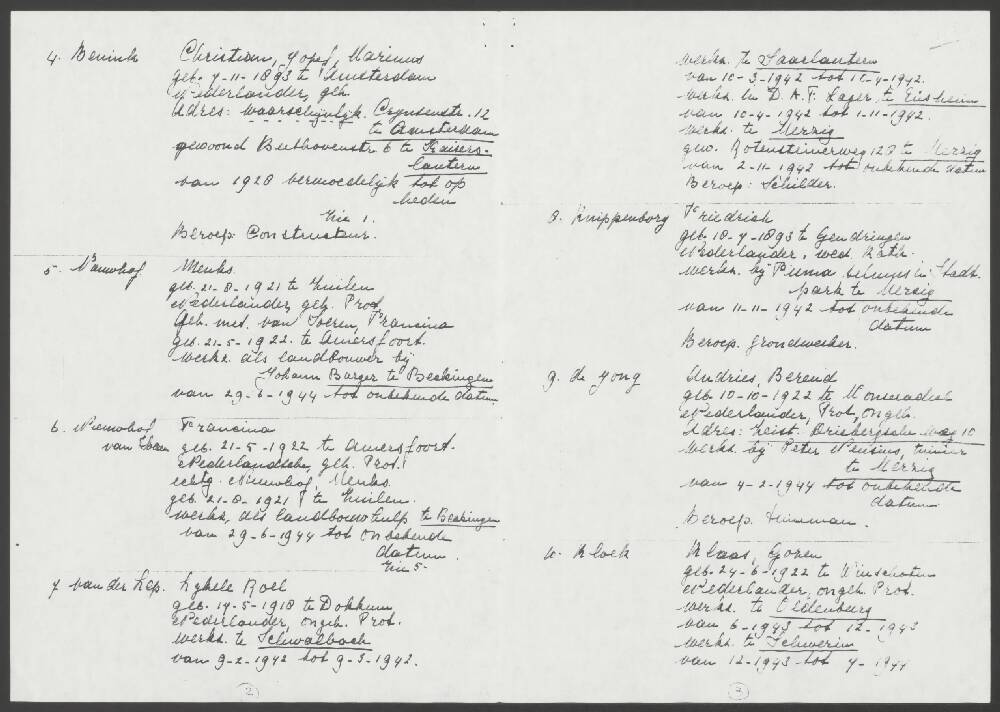 4. Benink Christiaan, Jopef, Marinus
geb. 7-11-1893 te Amsterdam
Nederlander, geh.
Adres: waarschijnlijk. Crynsenstr. 12
te Amsterdam
gewoond Beethovenstr 6 te Kaisers-
lautern
van 1928 vermoedelijk tot op
heden
Zie 1.
Beroep: Constructeur.
5. Nieuwhof Menks.
geb. 21-8-1921 te Zuilen
Nederlander, geh. Prot.
Geh. met. van Soeren, Francina
geb. 21-5-1922. te Amersfoort.
werkz. als landbouwer bij
Johann Burger te Beckingen
van 29-6-1944 tot onbekende datum
6. Nieuwhof Francina
van geb. 21-5-1922 te Amersfoort.
Nederlandsche, geh. Prot.
echtg. Nieuwhof, Menks.
geb. 21-8-1921 te Zuilen.
werkz. als landbouwhulp te Beckingen
van 29-6-1944 tot onbekende
datum.
Zie 5.
7. van der Lep. Lykele Roel
geb. 14-5-1918 te Dokkum
Nederlander, ongeh. Prot.
werkz. te Schwalbach
van 9-2-1942 tot 9-3-1942.
2
werkz. te Saarlautern
van 10-3-1942 tot 10-4-1942.
werkz. in D.A.F. Lager te Ensheim
van 10-4-1942 tot 1-11-1942.
werkz. te Merzig
gew. Rotensteinerweg 127 te Merzig
van 2-11-1942 tot onbekende datum
Beroep: Schilder.
8. Knippenborg Friedrich
geb. 18-7-1893 te Gendringen
Nederlander, wed. Kath.
werkz. bij Puma Stadt.
park te Merzig
van 11-11-1942 tot onbekende
datum
Beroep. grondwerker.
9. de Jong Andries, Berend
geb. 10-10-1922 te Wonseradeel
Nederlander, Prot, ongeh.
Adres: Zeist. weg 10
werkz. bij Peter
te Merzig
van 4-2-1944 tot onbekende
datum
Beroep. Tuinman.
10. Kloek Klaas, Gozen
geb. 24-6-1922 te Winschoten
Nederlander, ongeh. Prot.
werkz. te Oldenburg
van 6-1943 tot 12-1943
werkz. te Schwerin
van 12-1943 tot 7-1944
3